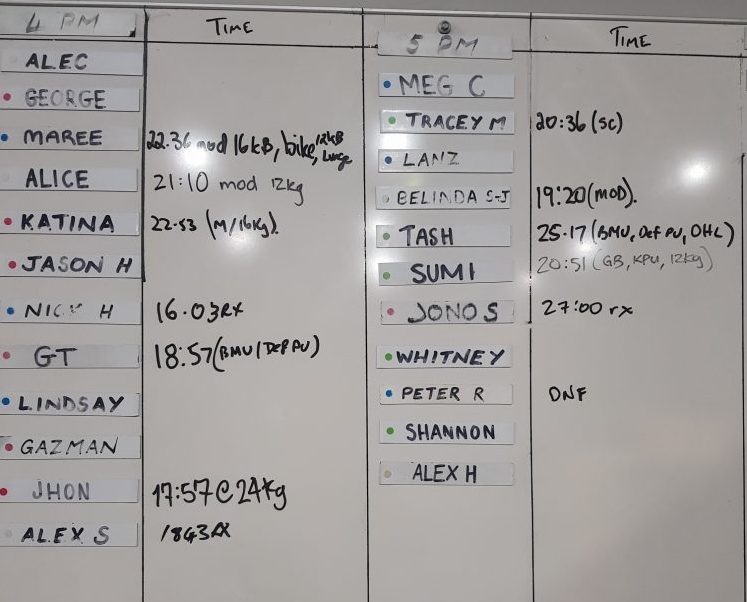 4 PM TIME
ALEC
GEORGE
MAREE 22.36 mod 16KB, bike, 12KB Lunge
ALICE 21:10 mod 12kg
KATINA 22.53 (M/16kg).
JASON H
NICK H 16.03RX
GT 18:57(BMU/DEF PU)
LINDSAY
GAZMAN
JHON 17:57@24kg
ALEX S 1843RX
5 PM TIME
MEG C
TRACEY M 20:36 (SC)
LANZ
BELINDA S-J 19:20(MOD).
TASH 25.17(BMU, Def PU, OHL)
SUMI 20:51(GB, KPU, 12kg)
JONO S 27:00 rx
WHITNEY
PETER R DNF
SHANNON
ALEX H